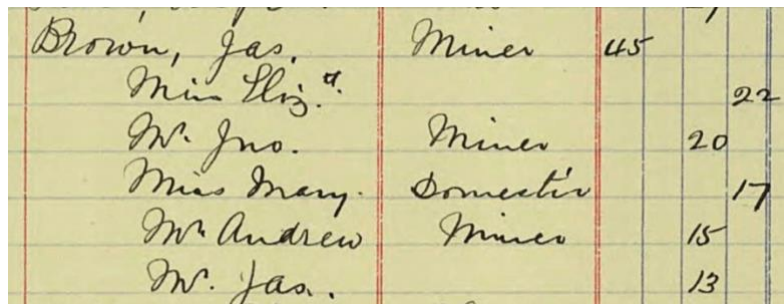 Brown, Jas. Miner 45
Miss Eliz.ª 22
Mr. Jno. Miner 20
Miss Mary. Domestic 17
Mr Andrew Miner 15
Mr. Jas. 13